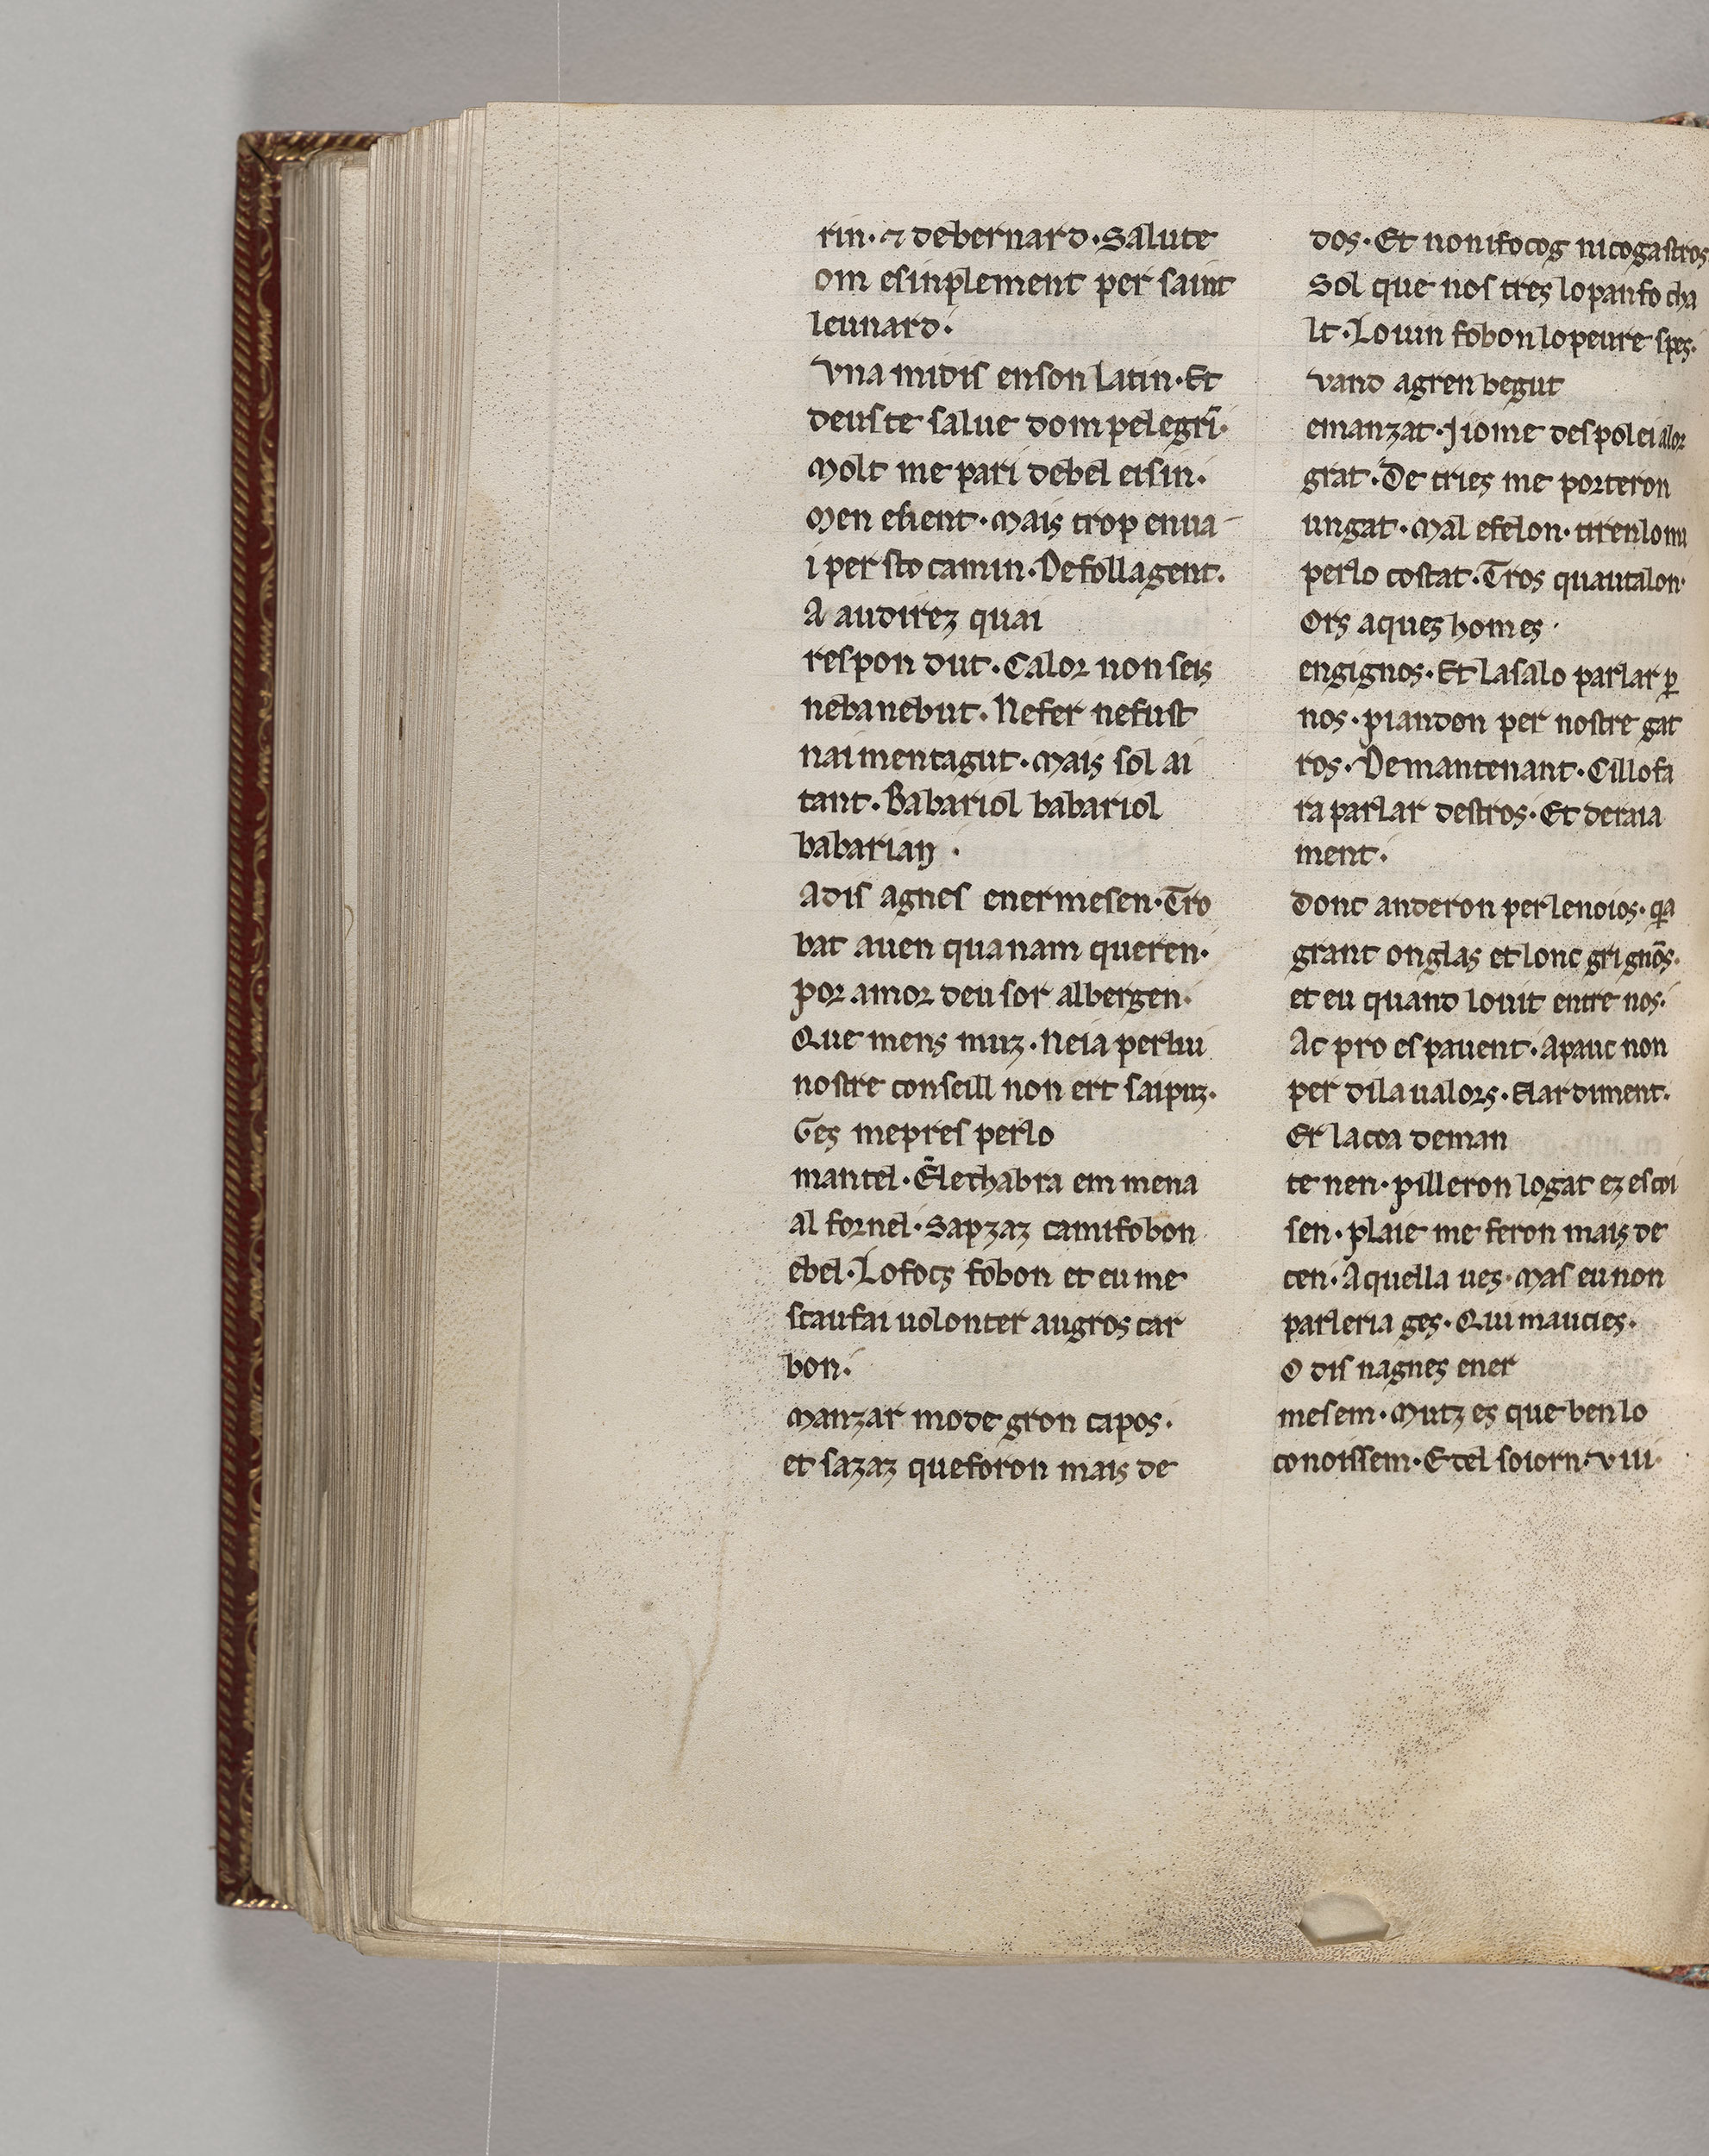 rin· ⁊ debernard·Salute
om esinplement per saint
leunard·
Vna midis enson latin·Et
deuste salue dom pelegrī·
Molt me pari debel eisin·
Men esient·Mais trop enua-
i per sto camin·Defollagent·
A audirez quai
respon dut·Calor non seis
nebanebut·Nefer nefust
naimentagut·Mais sol ai
tant·Babariol babariol
babarian·
Adis agnes enermesen·Tro
bat auen quanam queren·
por amor deu sor albergen·
Que mens muz·Neia perlui
nostre conseill non ert saipuz·
Ges mepres perlo
mantel·Elechabra em mena
al fornel·Sapzaz camifobon
ebel·Lofocs fobon et eu me
scaufai uolonter augros car
bon·
Manzar mode gron capos·
et sazaz queforon mais de
dos·Et nonifocog nicogastros
Sol que nos tres lopanfo cha
lt·Louin fobon lopeure spes·
Vand agren begut
emanzat·Jiome despolei alor
grat·De tries me porteron
ungat·Mal efelon·tirenlomi
perlo costat·Tros quautalon·
Ors aques homes·
engignos·Et lasalo parlar ꝑ
nos·piandon per nostre gat
ros·Demantenant·Cillofa
ra parlar destros·Et deraia
ment·
Donc anderon perlenoios·
grant onglas et lonc grignōs·
et eu quand louit entre nos·
Ac pro espauent·Apauc non
per dilaualors·Elardiment·
Et lacoa deman
te nen·pilleron logat ez escoi
sen·plaie me feron mais de
cen·Aquella ues·Mas eu non
parleria ges·Qui maucies·
O dis nagnes ener
mesem·Mutz es que ben lo
conoissem·Etel soiorn·viii·